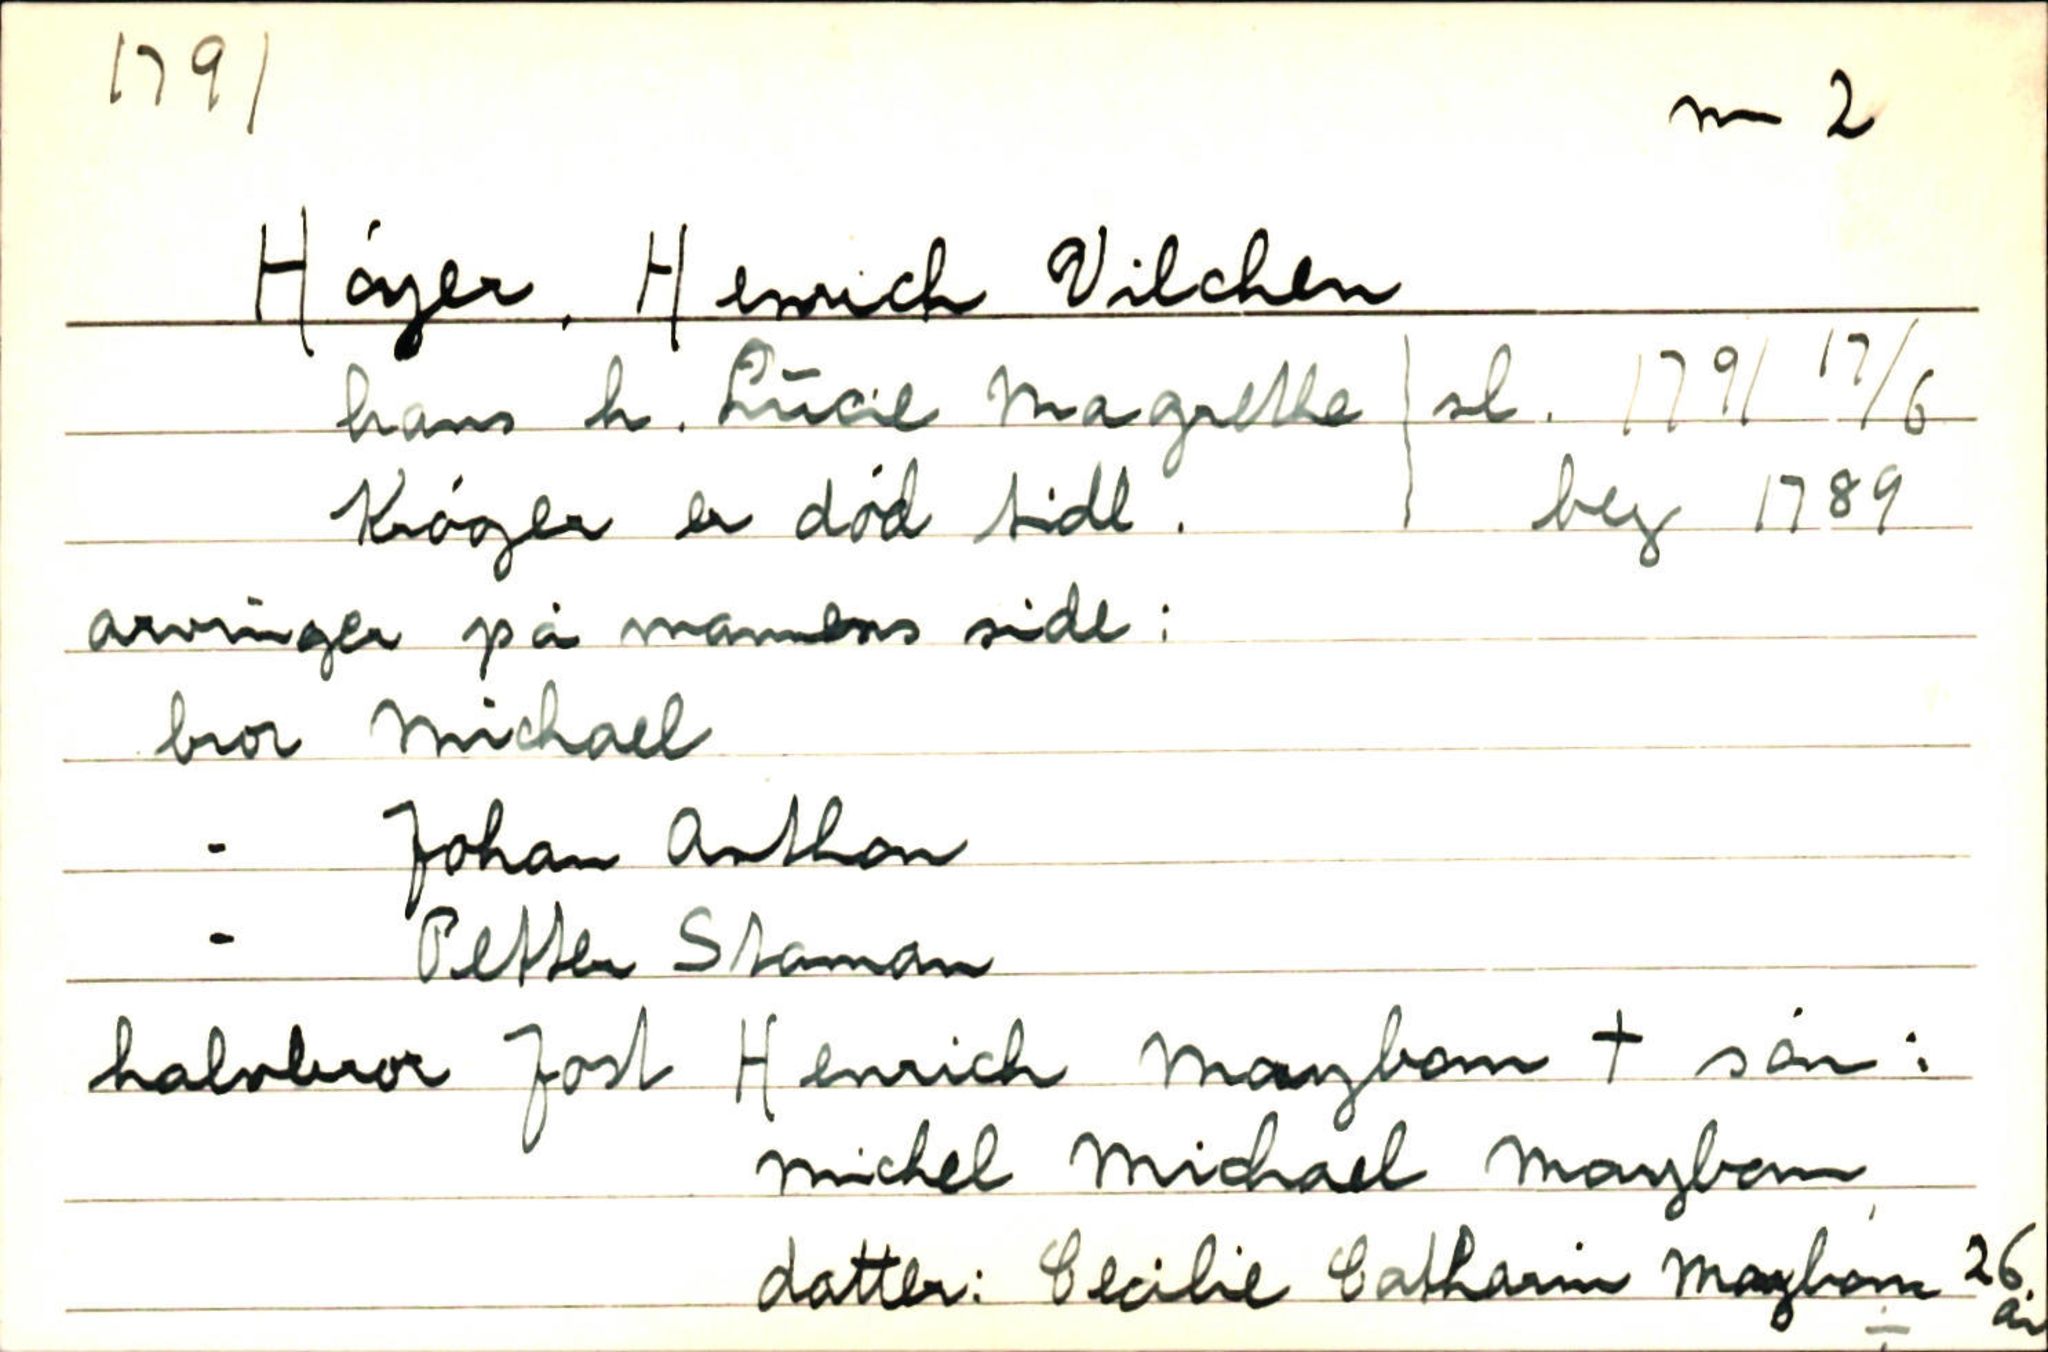 1791
m 2
Høyer, Henrich Vilchen
hans h. Lūcie Magrethe sl. 1791 17/6
Krøger er død tidl. beg 1789
arvinger på mannens side:
bror Michael
- Johan Anthon
- Petter Staman
halvbror Jost Henrich Maybom † søn:
Michel Michael Maybom,
datter: Cecilie Catharin Maybom 26 år